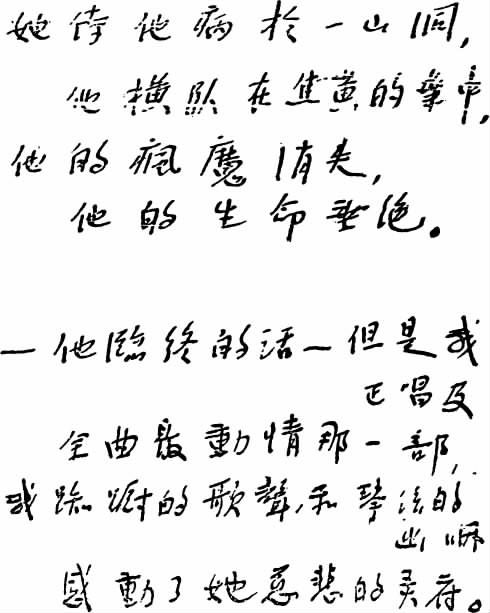 她侍他病於一山洞，
他横臥在焦黃的葉中，
他的瘋魔消失，
他的生命垂絕。
—他臨終的話—但是我
正唱及
全曲最動情那一部，
我踟躕的歌聲，和琴弦的
幽咽
感動了她慈悲的灵府。